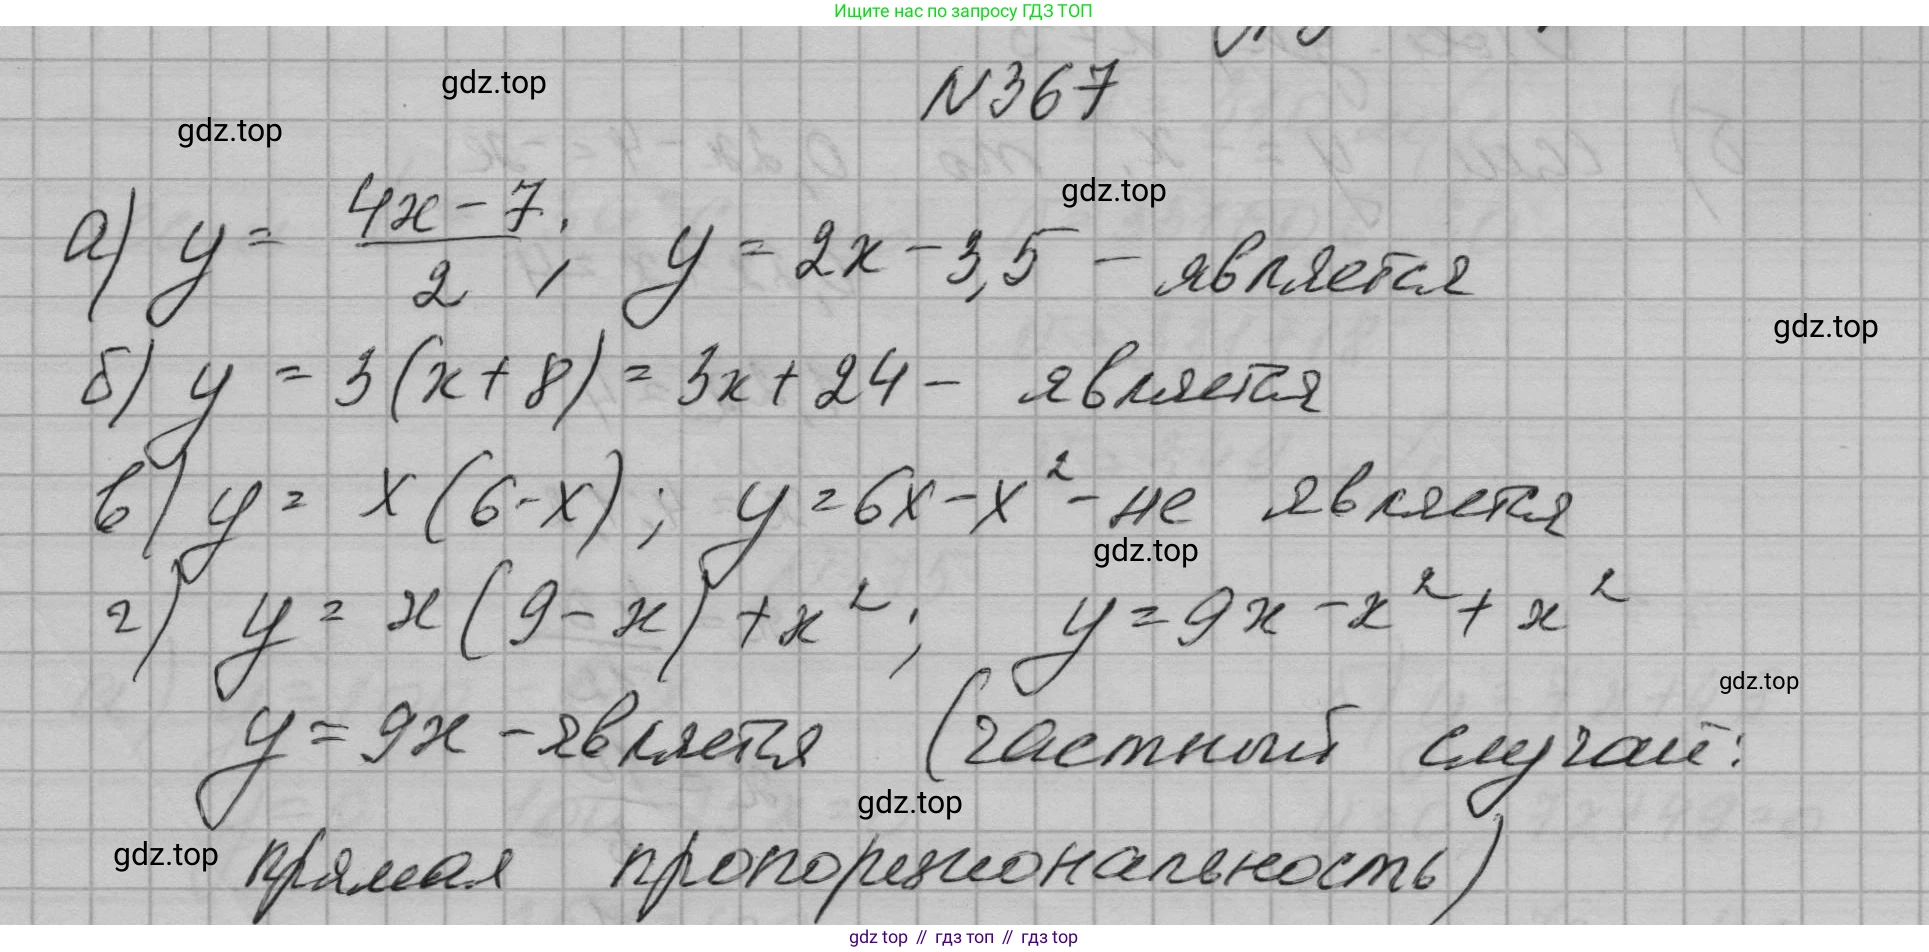 Ищите нас по запросу ГДЗ ТОП
N367
gdz.top
gdz.top
gdz.top
а) y = (4x - 7)/2; y = 2x - 3,5 - является
gdz.top
б) y = 3(x + 8) = 3x + 24 - является
в) y = x(6-x); y = 6x - x² - не является
gdz.top
г) y = x(9 - x) + x²; y = 9x - x² + x²
gdz.top
y = 9x - является (частный случай:
gdz.top
gdz.top
прямая пропорциональность)
gdz top // гдз топ // гдз top